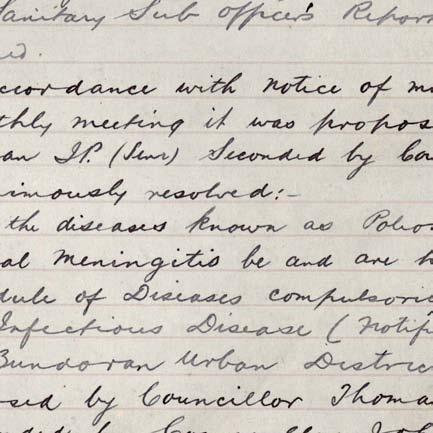 Sanitary Sub officers Repor
ed.
ccordance with notice of m
thly meeting it was propos
an J.P. (Senr) Seconded by Cou
imously resolved:-
the diseases known as Polio
al Meningitis be and are h
dule of Diseases compulsori
Infectious Disease (Notif
Bundoran Urban District
sed by Councillor Thoma